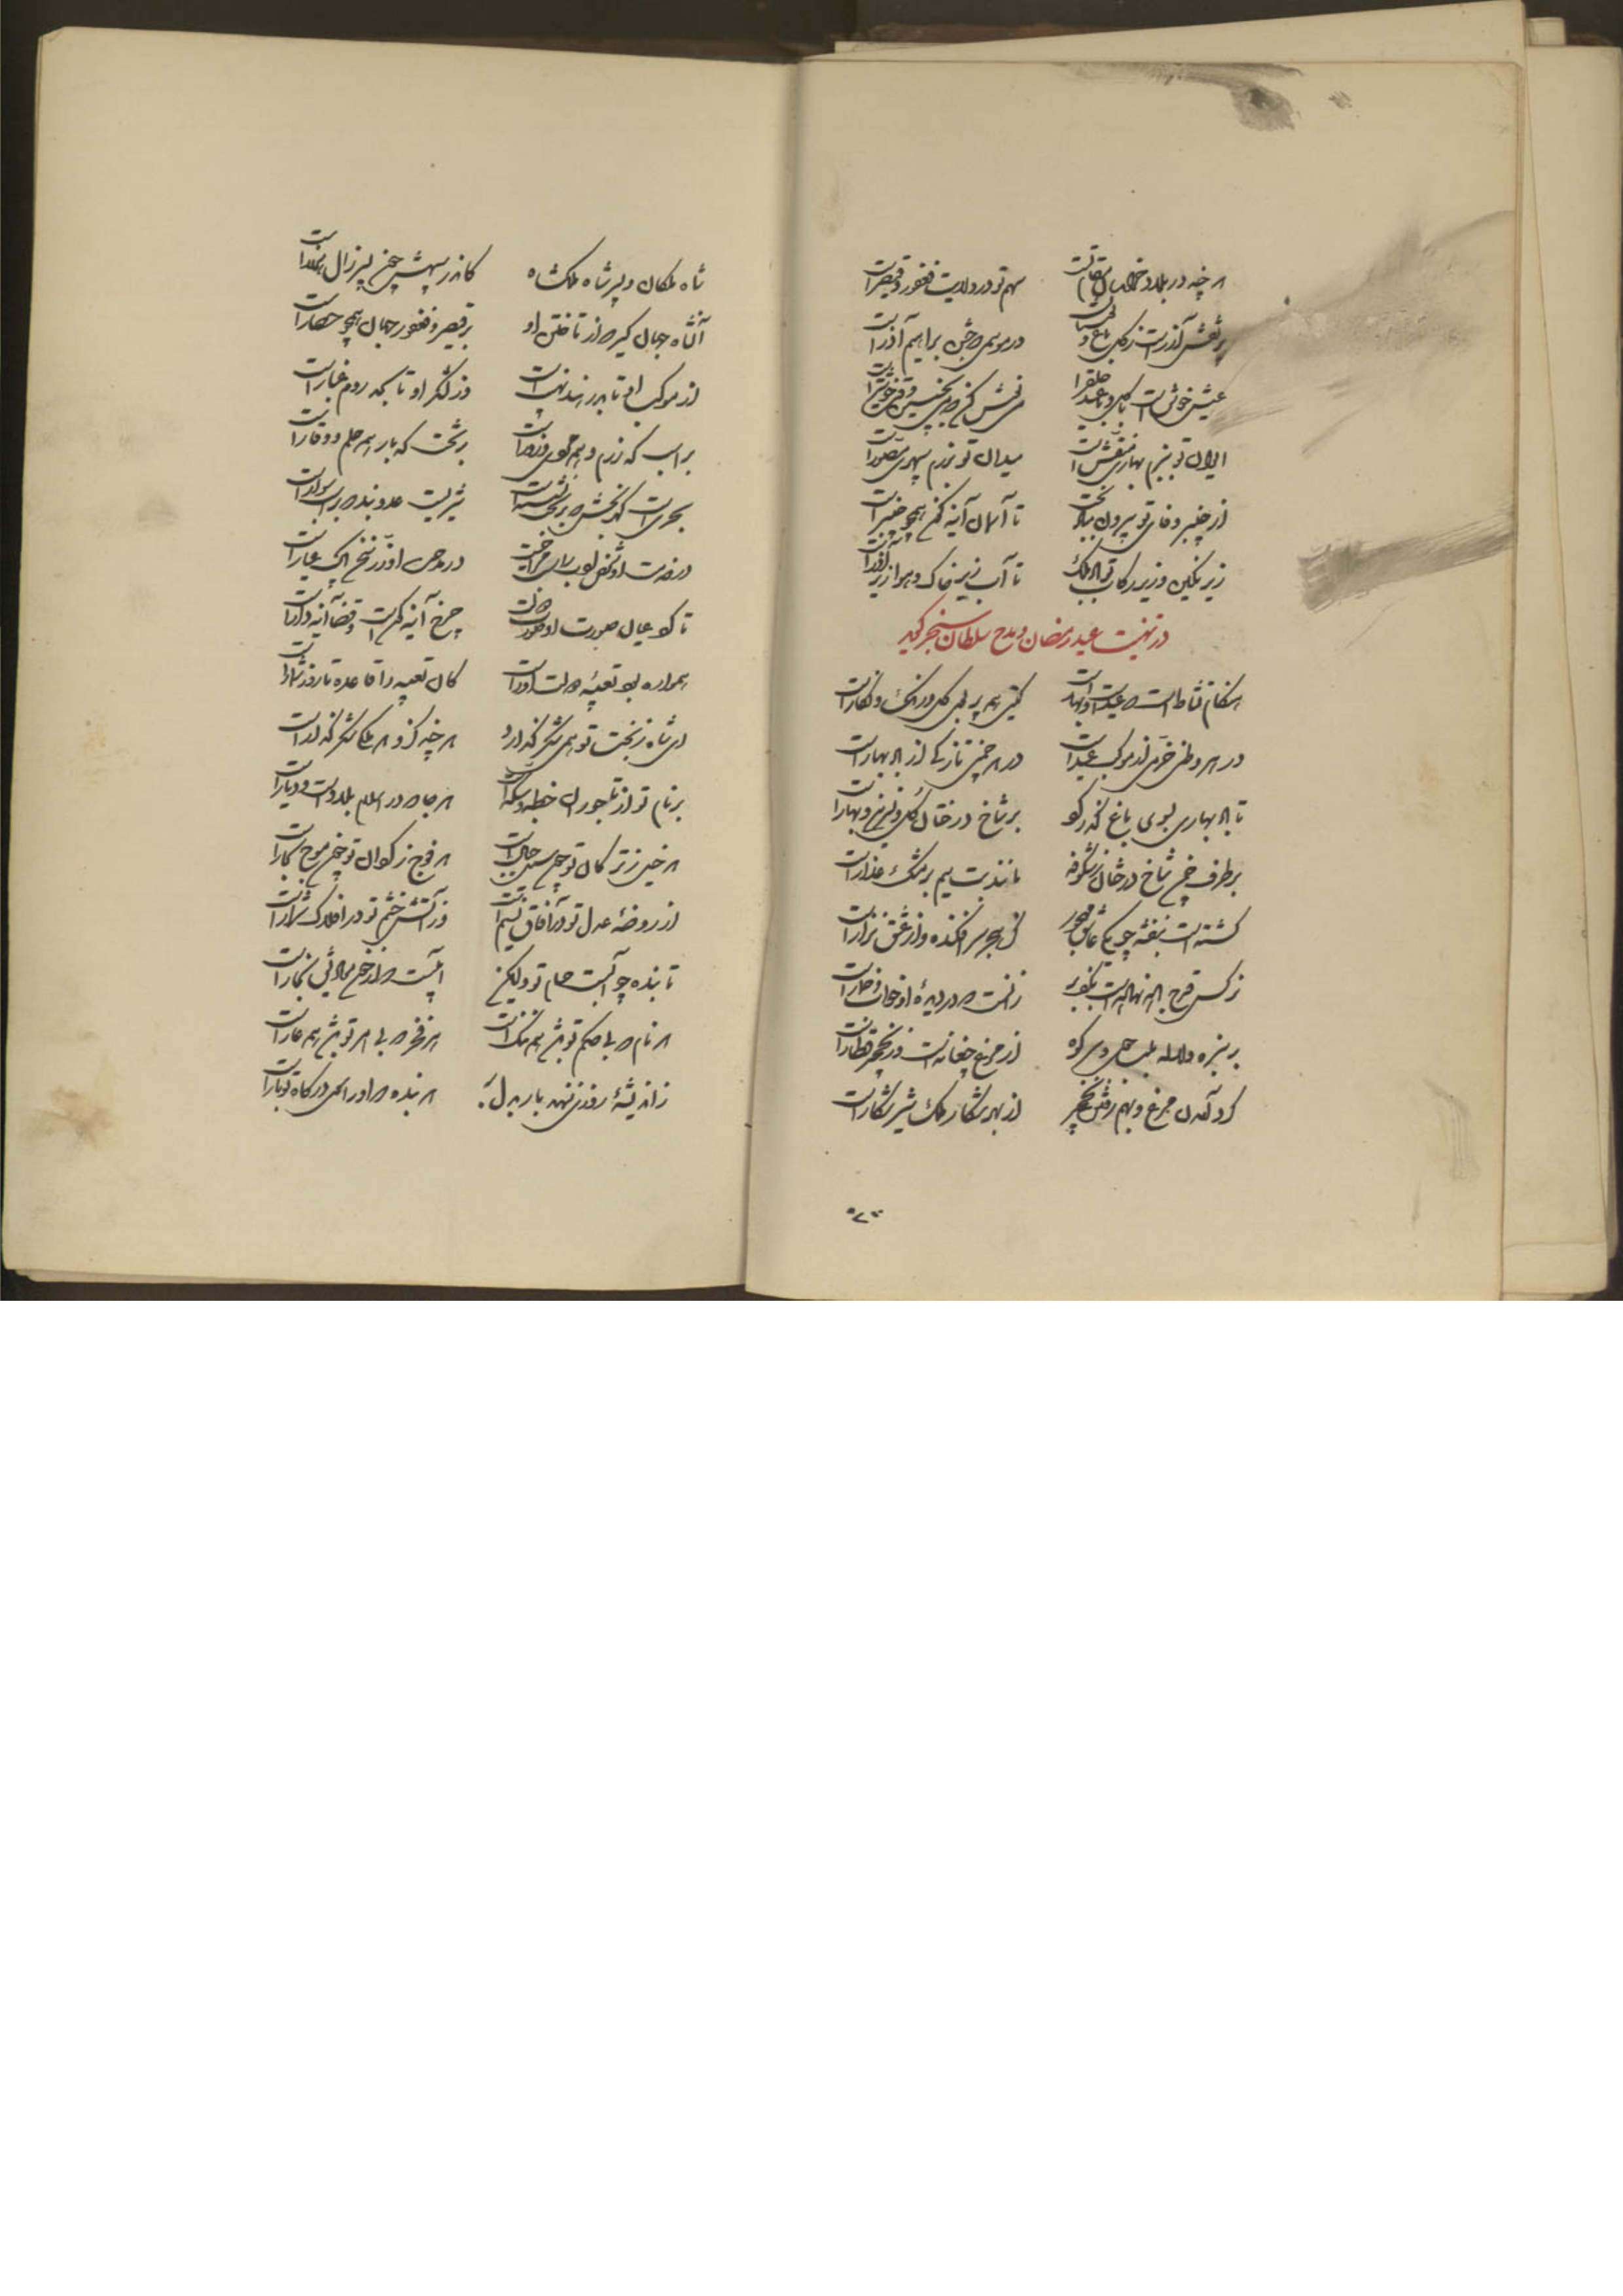 هر چه در بلاد خراسان مقام تست سهم تو در ولایت فغفور و قیصر است
پر نقش آذر است ز گل باغ و در موسمی چنین براهیم آذر است
عیش خوش است با گل
ایوان تو ببزم بهاری منقش است میدان تو برزم سپهری مصور است
از چنبر وفای تو بیرون مباد بخت تا آسمان آینه گون همچو چنبر است
زیر نگین و زیر رکاب تو باد ملک تا آب زیر خاک و هوا زیر آذر است
در تهنیت عید رمضان و مدح سلطان سنجر گوید
هنگام نشاط است که عید است و بهار است گیتی همه پر بوی گل و رنگ و نگار است
در هر وطنی خرمی از موکب عید است در هر چمنی تازگی از باد بهار است
تا باد بهاری بسوی باغ گذر کرد بر شاخ درختان گل و نسرین و بهار است
بر طرف چمن شاخ درختان ز شکوفه مانند بت سیم بر مشک عذار است
گشته است بنفشه چو یکی عاشق مهجور کز هجر سر افکنده و از عشق نزار است
نرگس قدح باده نهاده است بکف بر زانست که در دیده او خواب و خمار است
بر سبزه و لاله بلب جوی و سر کوه از مرغ چغانه است و ز نخجیر قطار است
گرد آمدن مرغ و بهم رفتن نخجیر از بهر شکار ملک شیر شکار است
شاه ملکان و پسر شاه ملکشاه کاندر سپهش چون پسر زال هزار است
آن شاه جهان گیر که از تاختن او بر قیصر و فغفور جهان همچو حصار است
از موکب او تا بدر هند نهیب است وز لشکر او تا بحد روم غبار است
بر اسب که رزم و همه گوی فروز است بر تخت که بار همه حلم و وقار است
بحری است که بخشش که بر تخت نشسته است شیری است عدو بند که بر اسب سوار است
در خدمت او شغل در مدحت او زر سخن پاک عیار است
تا گوی عیان صورت او صورت چرخ آینه گون است و قضا آینه دار است
همواره بود تعبیه دولت او راست کان تعبیه را قاعده تا روز شمار است
ای شاه ز بخت تو همی شکر گذارد هر چه کز و هر ملکی شکر گذار است
بر نام تو از تاجوران خطبه و سکه است هر جا که در اسلام بلاد است و دیار است
هر خیل ز ترکان تو چون سیل جبال است هر فوج ز گردان تو چون موج بحار است
از روضه عدل تو در آفاق نسیم است وز آتش خشم تو در افلاک شرار است
تابنده چو آبست حسام تو ولیکن آبیست که از خون معادیش بخار است
هر نام که بی حکم تو بینی همه ننگ است هر فخر که بی امر تو بینی همه عار است
ز اندیشه روزی ننهد بار بدل بر هر بنده که او را همی درگاه تو بار است